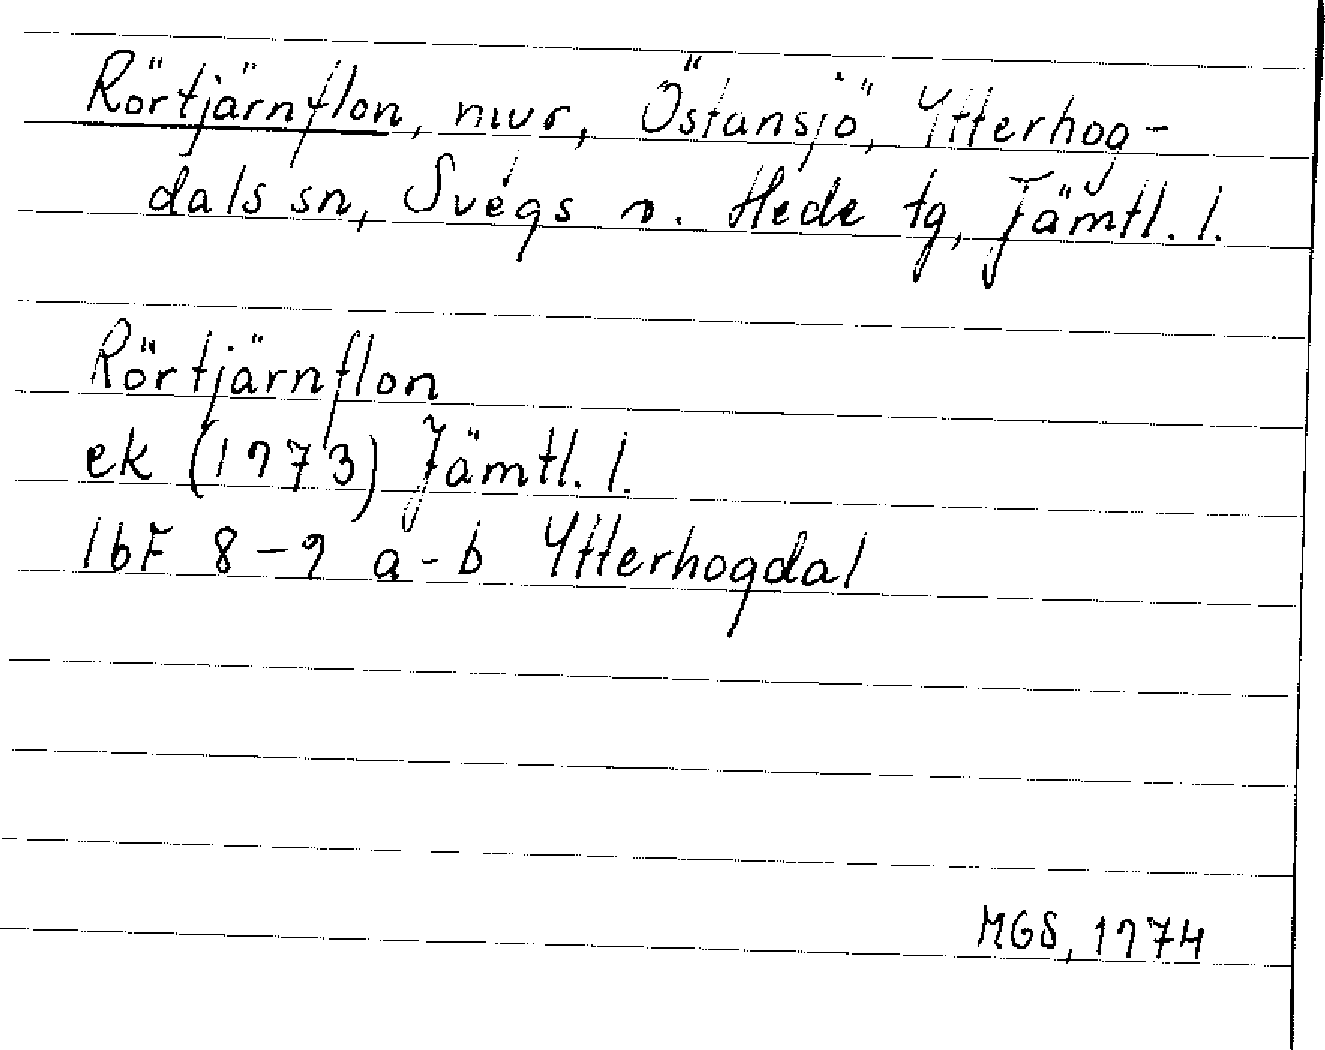 Rörtjärnflon, myr, Östansjö, Ytterhog-
dals sn, Svegs o. Hede tg, Jämtl. l.
Rörtjärnflon
ek (1973) Jämtl. l.
16F 8-9 a-b Ytterhogdal
MGS, 1974